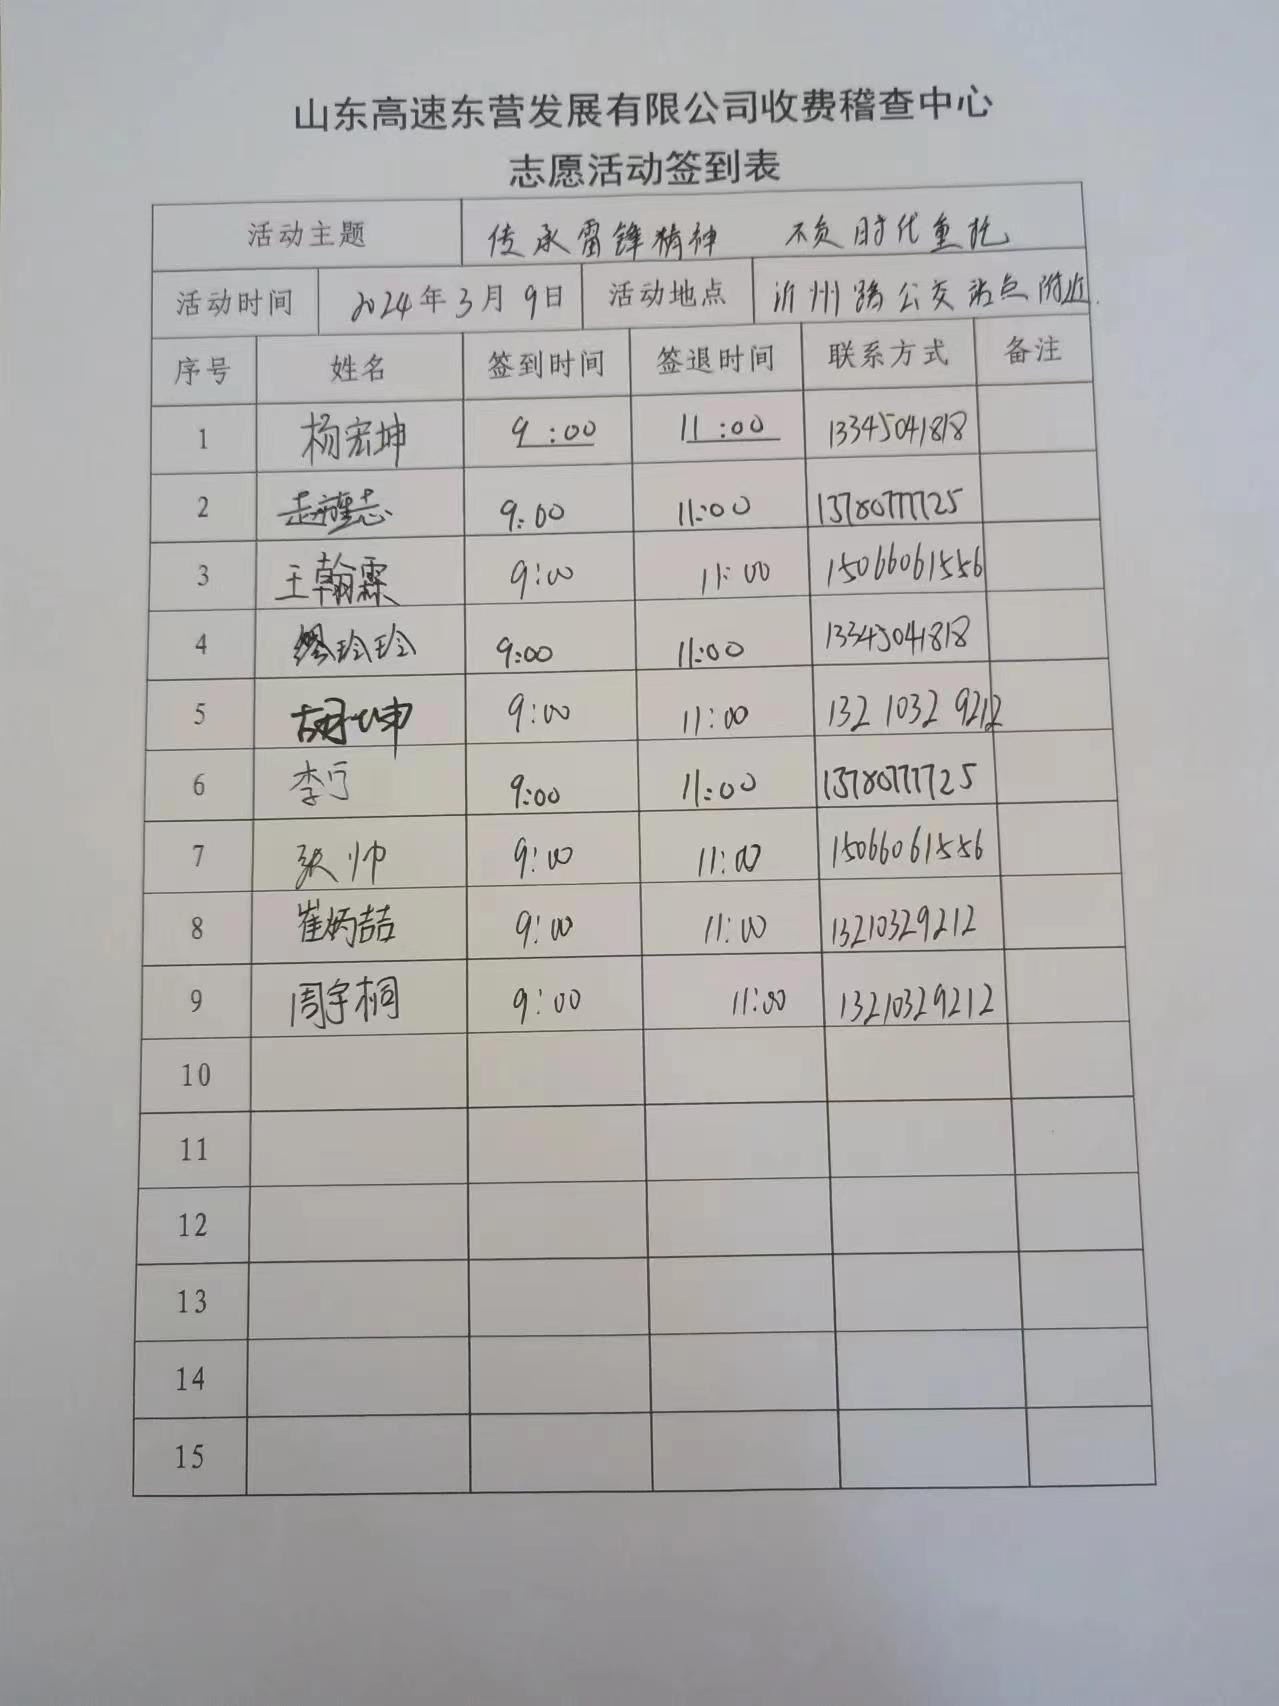 山东高速东营发展有限公司收费稽查中心
志愿活动签到表
活动主题 传承雷锋精神 不负时代重托
活动时间 2024年3月9日 活动地点 沂州路公交站点附近.
序号 姓名 签到时间 签退时间 联系方式 备注
1 杨宏坤 9:00 11:00 13345041818
2 赵志 9:00 11:00 13780777725
3 王翰霖 9:00 11:00 15066061556
4 缪玲玲 9:00 11:00 13345041818
5 胡坤 9:00 11:00 132 1032 9212
6 李宁 9:00 11:00 13780777725
7 张帅 9:00 11:00 15066061556
8 崔炳喆 9:00 11:00 13210329212
9 周宇桐 9:00 11:00 13210329212
10
11
12
13
14
15